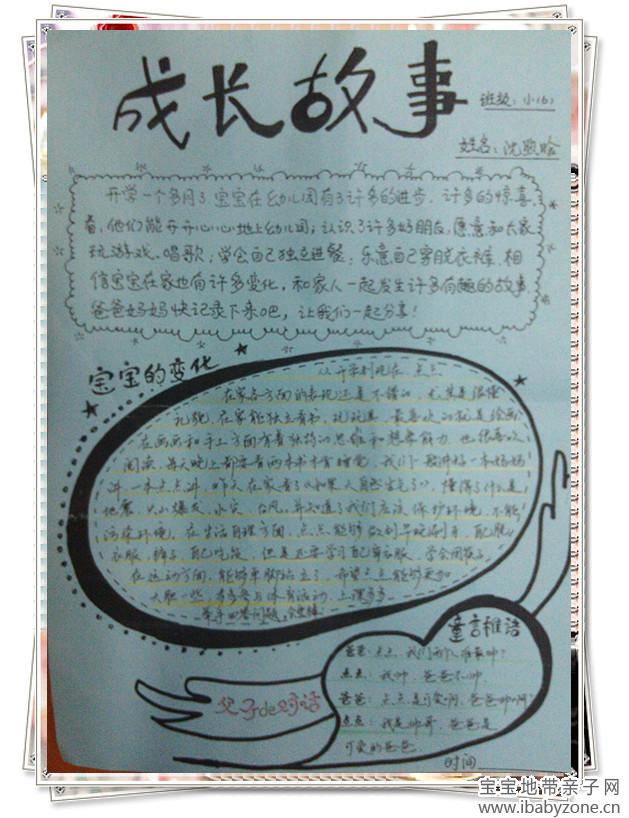 成长故事
班级：小(6)
姓名：沈
开学一个多月了宝宝在幼儿园有了许多的进步，许多的惊喜
着，他们能开开心心地上幼儿园；认识了许多好朋友，愿意和大家
玩游戏、唱歌；学会自己独立进餐；乐意自己穿脱衣裤，相
信宝宝在家也有许多变化，和家人一起发生许多有趣的故事，
爸爸妈妈快记录下来吧，让我们一起分享！
宝宝的变化
从开学到现在，点点
在家各方面的表现还是不错的，尤其是很懂
礼貌，在家能独立看书，玩玩具，最喜欢的就是绘画
在画画和手工方面有着独特的思维和想象能力，也很喜欢
阅读，每天晚上都要看两本书才肯睡觉，我们一般讲好一本妈妈
讲，一本点点讲，昨天在家看了《如果大自然生气了》，懂得了什么是
地震、火山爆发、水灾、台风，并知道了我们应该保护环境，不能
污染环境，在生活自理方面，点点能够做到早晚刷牙，自己脱
衣服，裤子，自己吃饭，但是还要学习自己穿衣服，学会用筷子，
在运动方面，能够单脚站立了，希望点点能够更加
大胆一些，多参与体育活动，上课多多
举手回答问题
童言稚语
爸爸：点点，我们两个人谁最帅？
点点：我帅，爸爸不帅
爸爸：点点是可爱啊，爸爸帅啊？
点点：我是帅哥，爸爸是
可爱的爸爸
父子de对话
时间
宝宝地带亲子网
www.ibabyzone.cn